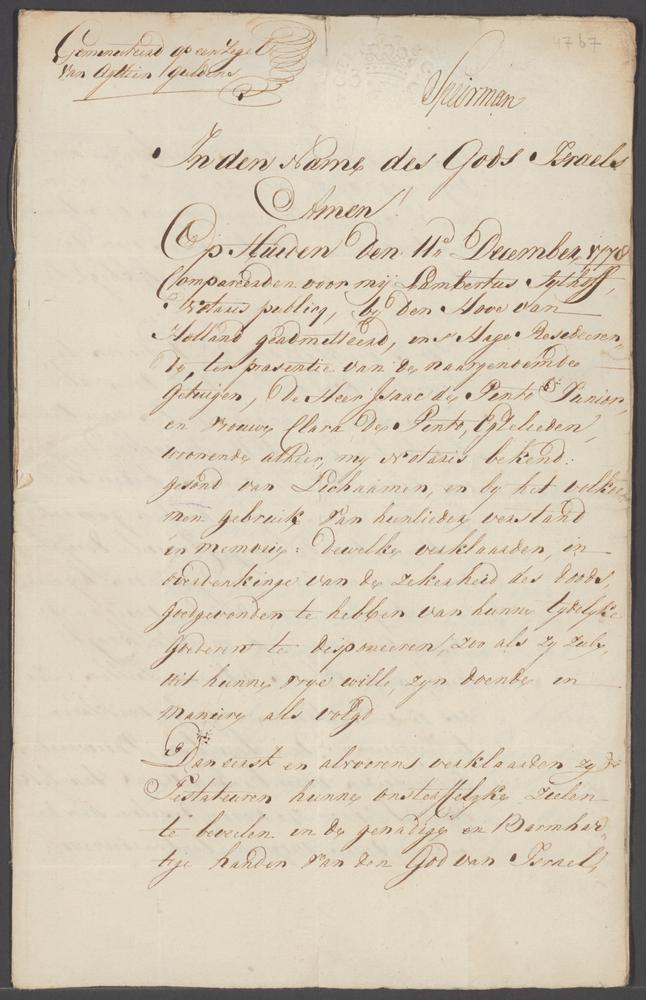 4767
Gemenuteerd op een Zegel
van Agttien guldens
Speirman
In den Name des Gods Israels
Amen!
Op Huiden den 11.e December 1778
Compareerden voor mij Lambertus Sythoff,
Notaris publicq, by den Hove van
Holland geadmitteerd, in 's Hage Resideeren-
de, ter presentie van de naargenoemde
Getuigen, De Heer Isaac de Pinto Junior,
en vrouwe Clara de Pinto, Egtelieden,
wonende alhier, my Notaris bekend:
gesond van Lichaamen, en by het volkoo
men gebruik van hunlieder verstand
en memorie: dewelke verklaarden, in
overdenkinge van de zekerheid des doods,
goedgevonden te hebben van hunne tydelyke
goederen te disponeeren, zoo als zy zulx,
uit hunne vrye wille, zyn doende in
maniere als volgd
Dan eerst en alvoorens verklaarden zy
Testateuren hunne onsterffelyke zielen
te beveelen in de genadige en Barmhar-
tige handen van den God van Israel,